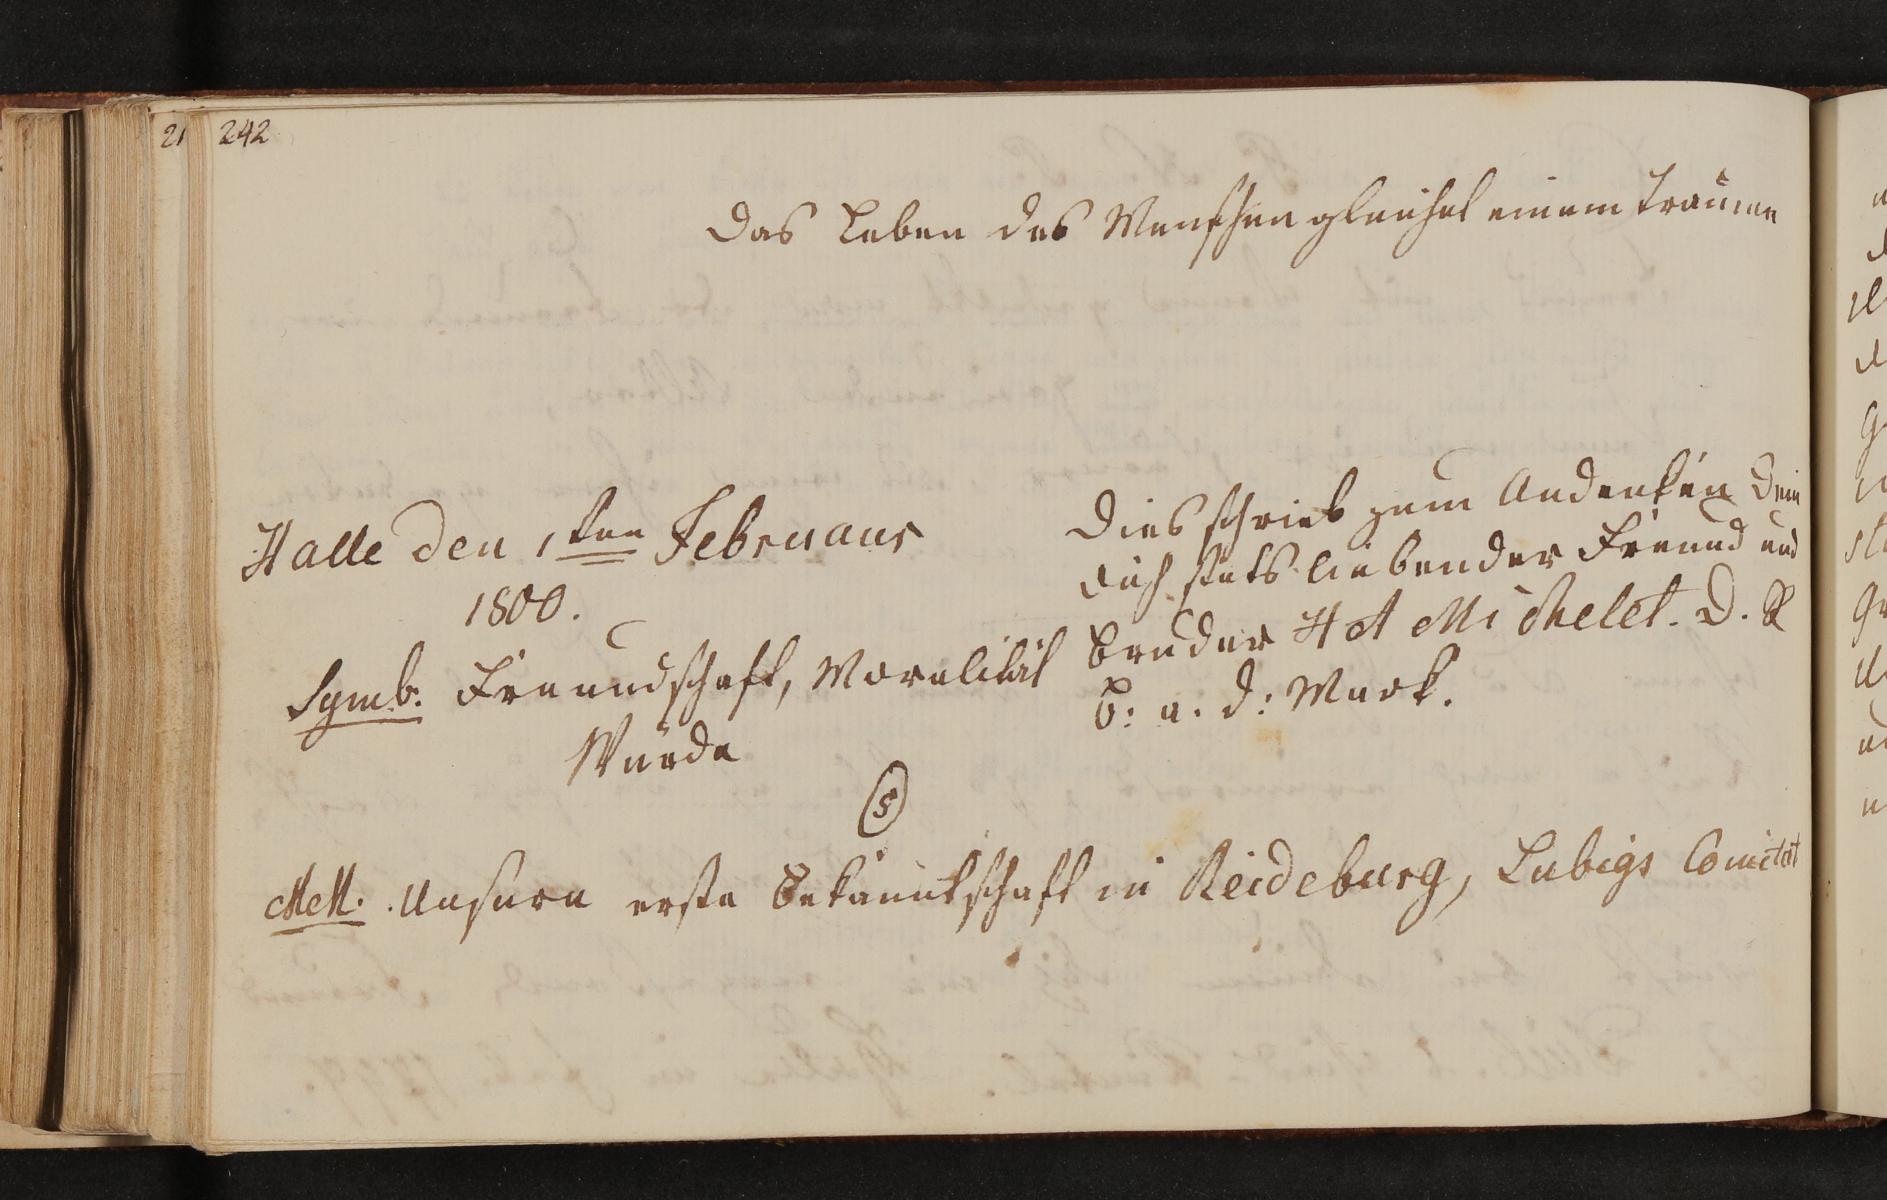 242
Das Leben des Menschen gleichet einem Traume
Halle den 1ten Februaur
1800.
Symb. Freundschaft, Moralität
Würde
Dies schrieb zum Andenken Dein
dich stets liebender Freund und
Bruder H A Michelet. D. R
B: a. d: Mark.
(S)
MM. Unsere erste Bekanntschaft in Reideburg, Lubigs Comitat